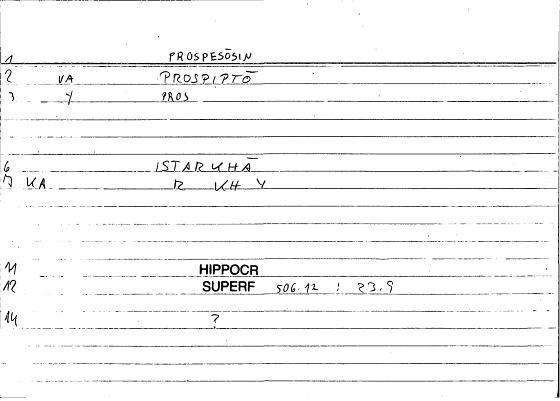 1 PROSPESŌSIN
2 VA PROSPIPTŌ
3 Y PROS
6 ISTARKHĀ
7 KA R KH Y
11 HIPPOCR
12 SUPERF 506.12 : 23.9
14 ?